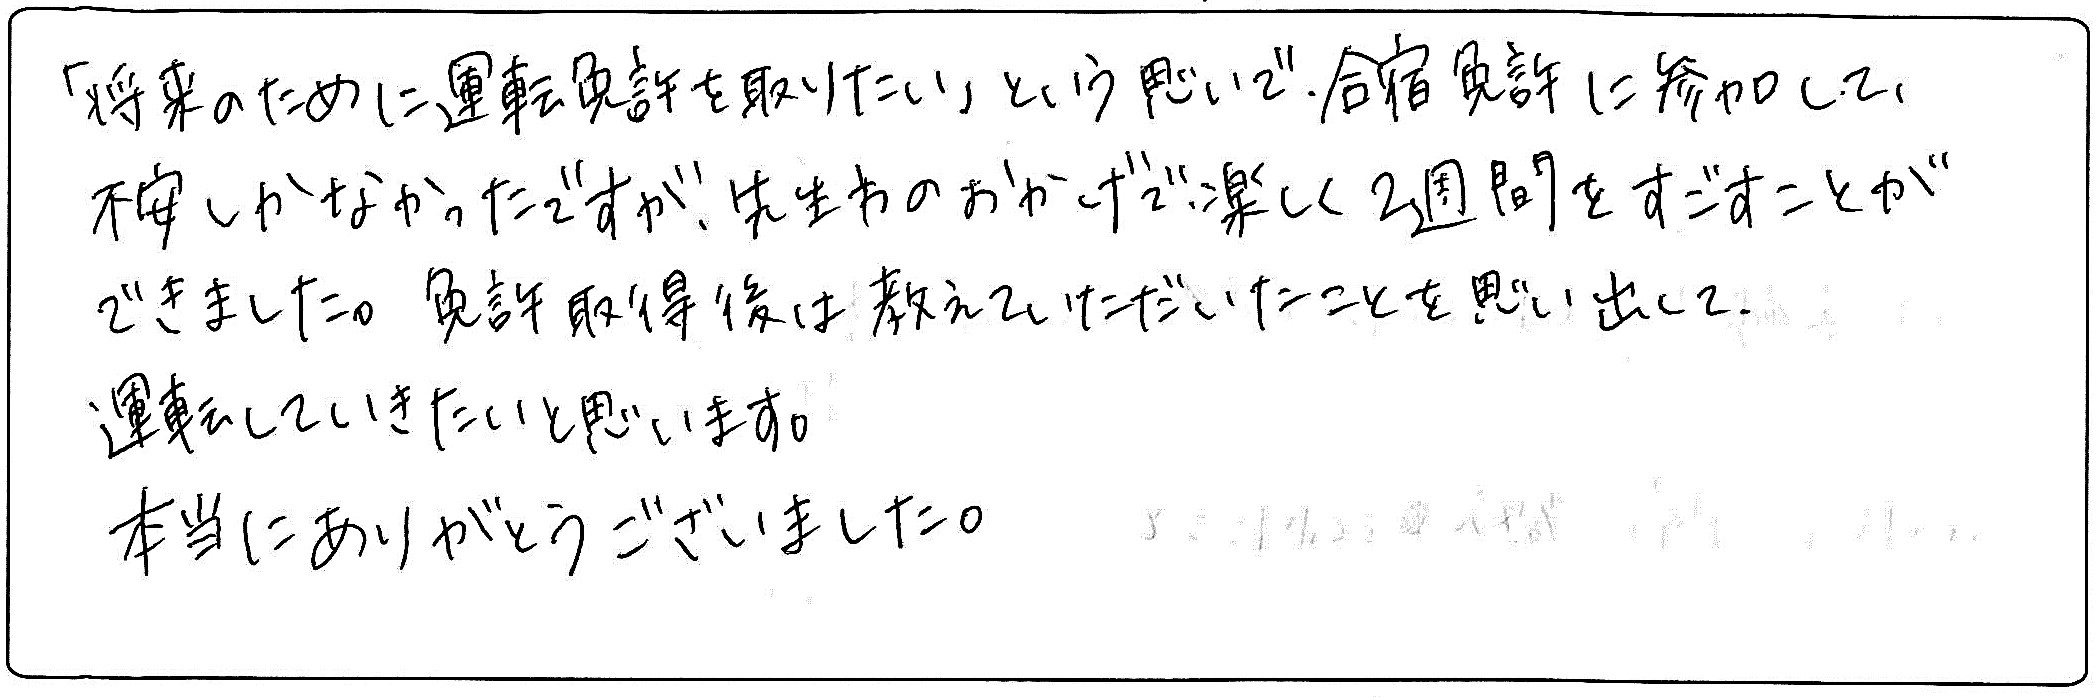 「将来のために運転免許を取りたい」という思いで、合宿免許に参加して、
不安しかなかったですが、先生方のおかげで、楽しく2週間をすごすことが
できました。免許取得後は教えていただいたことを思い出して、
運転していきたいと思います。
本当にありがとうございました。